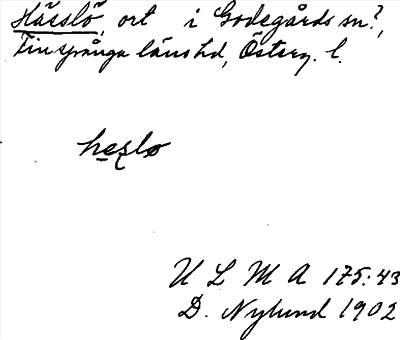 Hässlö, ort i Godegårds sn?,
Finspånga länshd, Östерg. l.
hęslo
U L M A 175:43
D. Nylund 1902